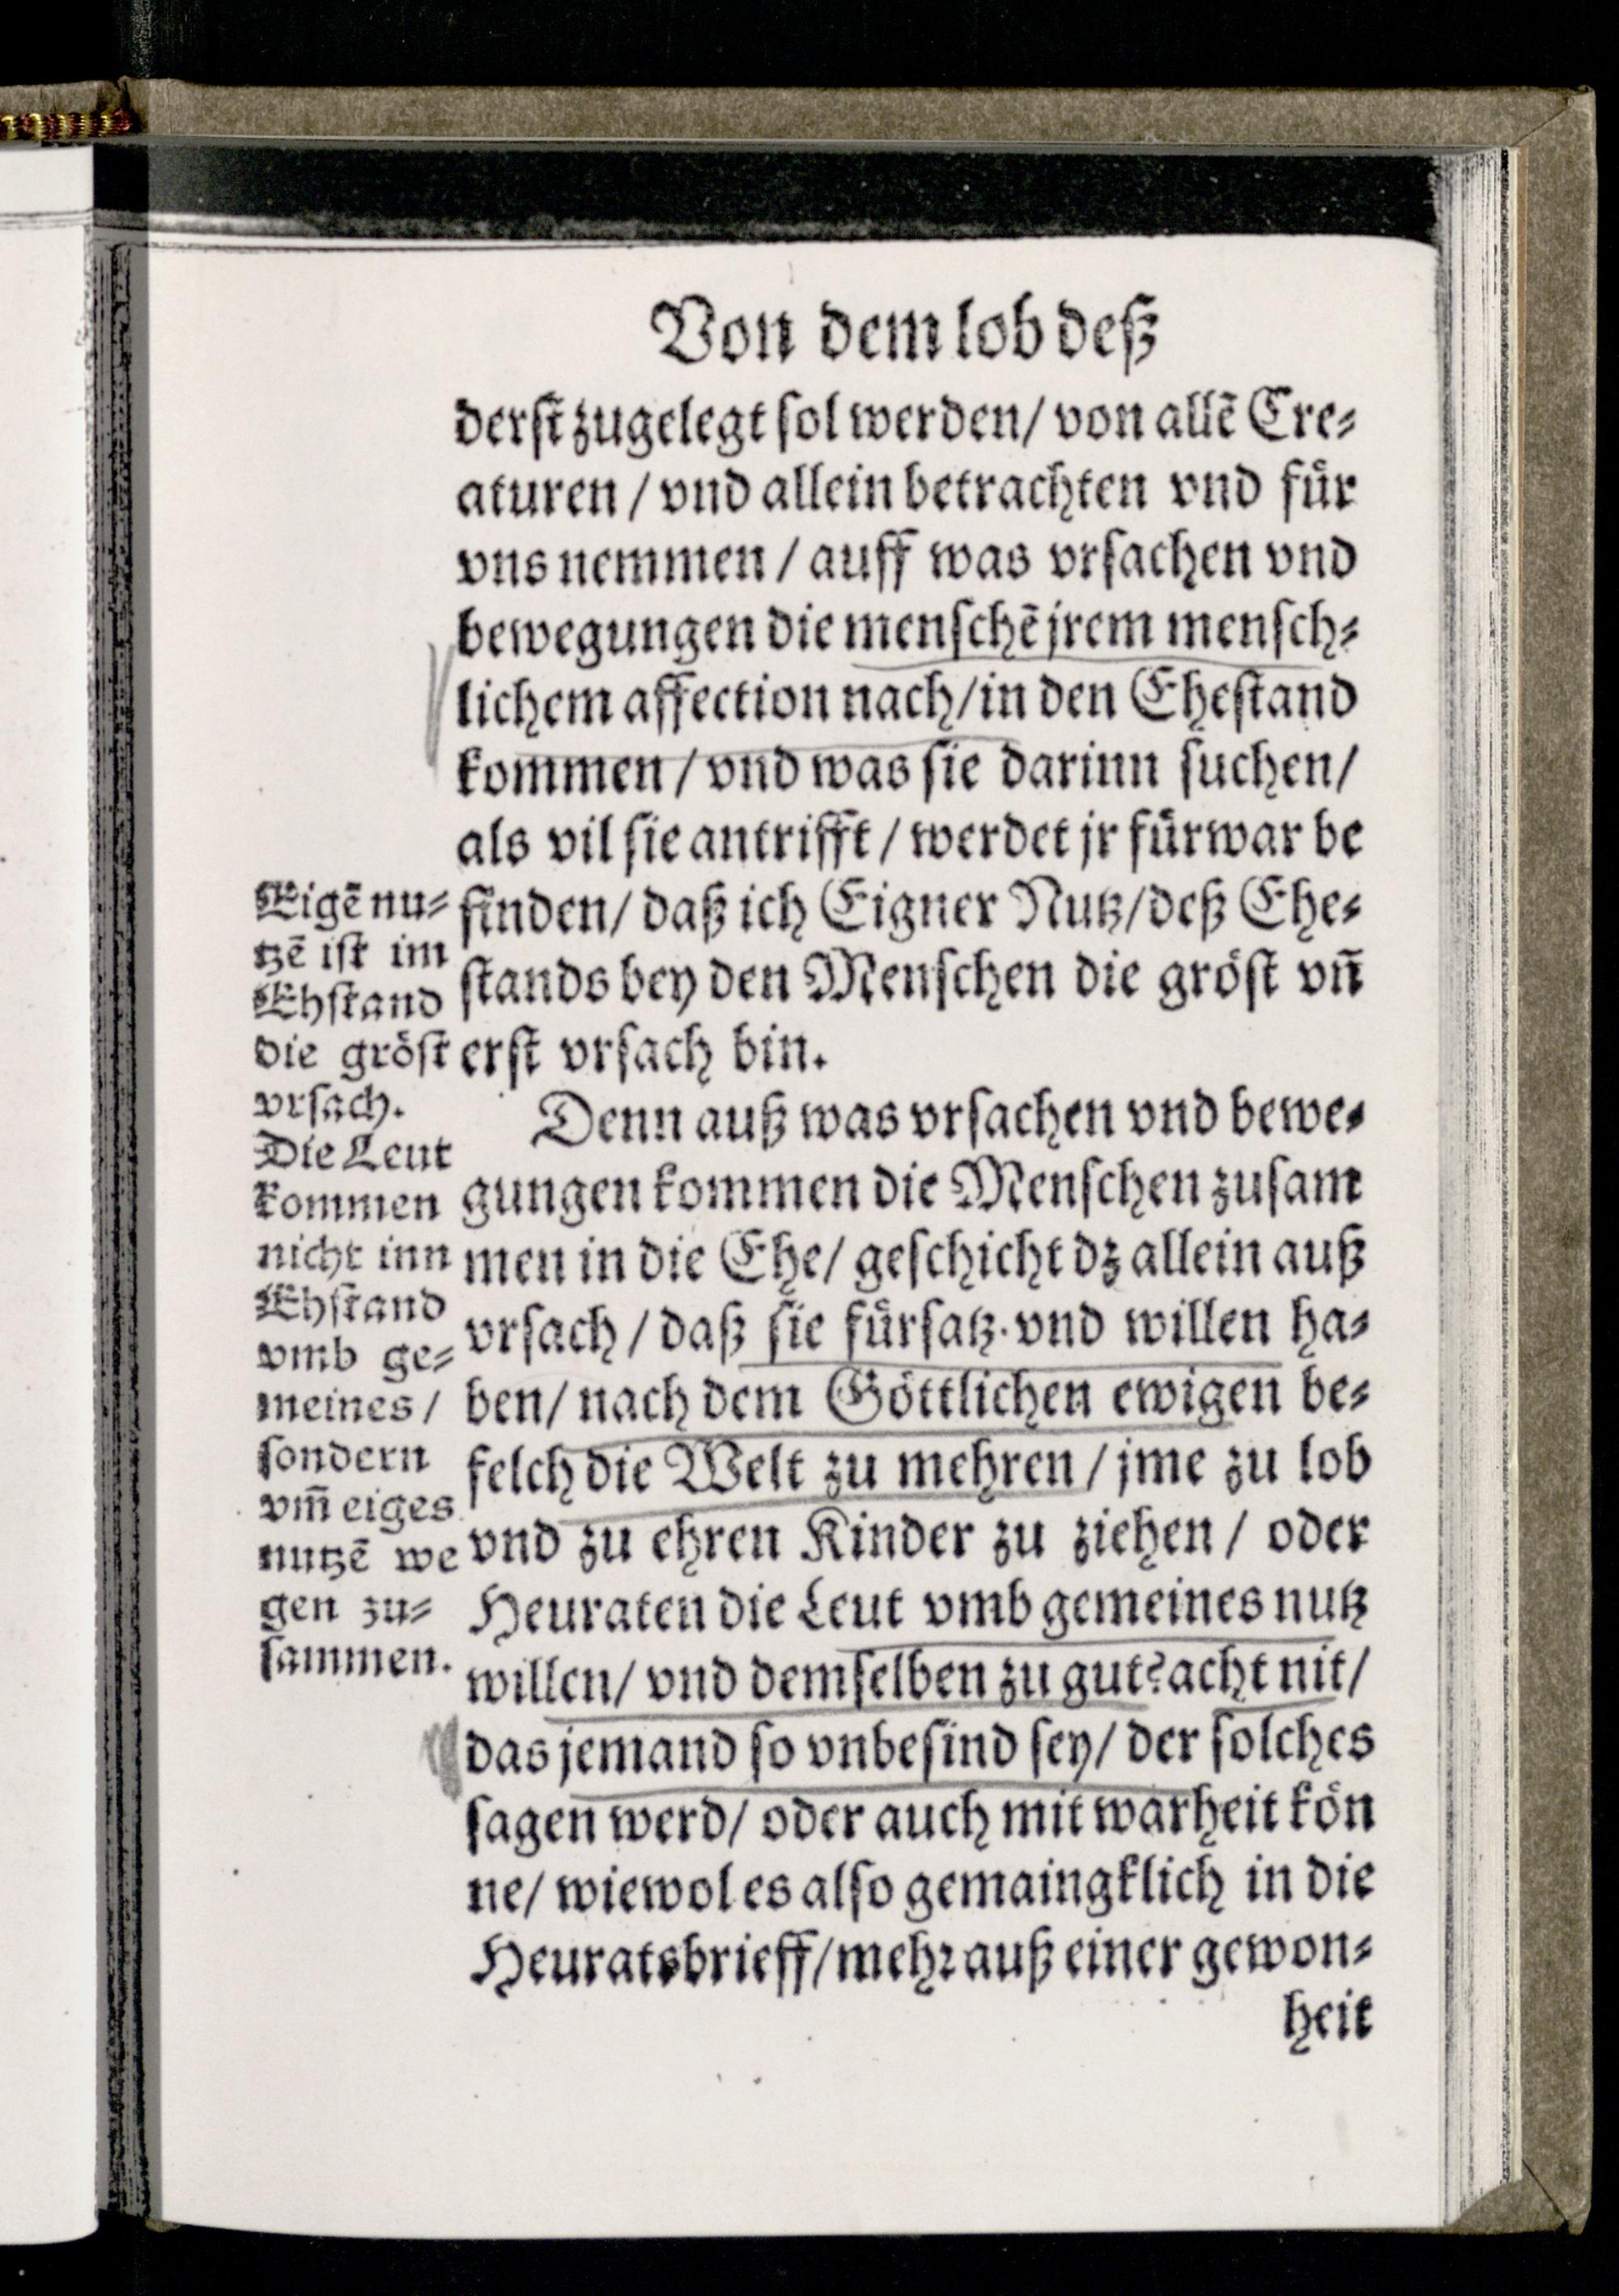 Von dem lob deß
derſt zugelegt ſol werden/ von allē Cre⸗
aturen / vnd allein betrachten vnd fuͤr
vns nemmen / auff was vrſachen vnd
bewegungen die menſchē jrem menſch⸗
lichem affection nach/in den Eheſtand
kommen / vnd was ſie darinn ſuchen/
als vil ſie antrifft / werdet jr fuͤrwar be
finden/ daß ich Eigner Nutz/deß Ehe⸗
ſtands bey den Menſchen die groͤſt vn̄
erſt vrſach bin.
Denn auß was vrſachen vnd bewe⸗
gungen kommen die Menſchen zuſam
men in die Ehe/ geſchicht dz allein auß
vrſach / daß ſie fuͤrſatz vnd willen ha⸗
ben/ nach dem Goͤttlichen ewigen be⸗
felch die Welt zu mehren / jme zu lob
vnd zu ehren Kinder zu ziehen / oder
Heuraten die Leut vmb gemeines nutz
willen/ vnd demſelben zu gut? acht nit/
das jemand ſo vnbeſind ſey/ der ſolches
ſagen werd/ oder auch mit warheit koͤn
ne/ wiewol es alſo gemaingklich in die
Heuratsbrieff/mehr auß einer gewon⸗
heit
Eigē nu⸗
tzē iſt im
Ehſtand
die groͤſt
vrſach.
Die Leut
kommen
nicht inn
Ehſtand
vmb ge⸗
meines /
ſondern
vm̄ eiges
nutzē we
gen zu⸗
ſammen.